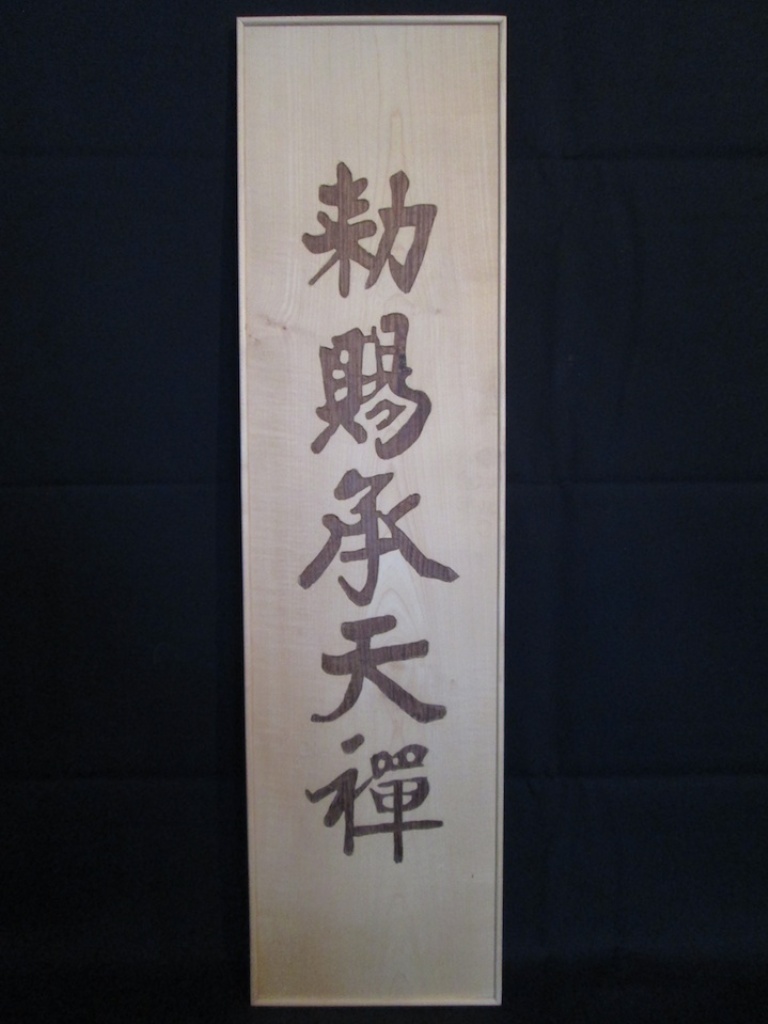 勅賜承天禪